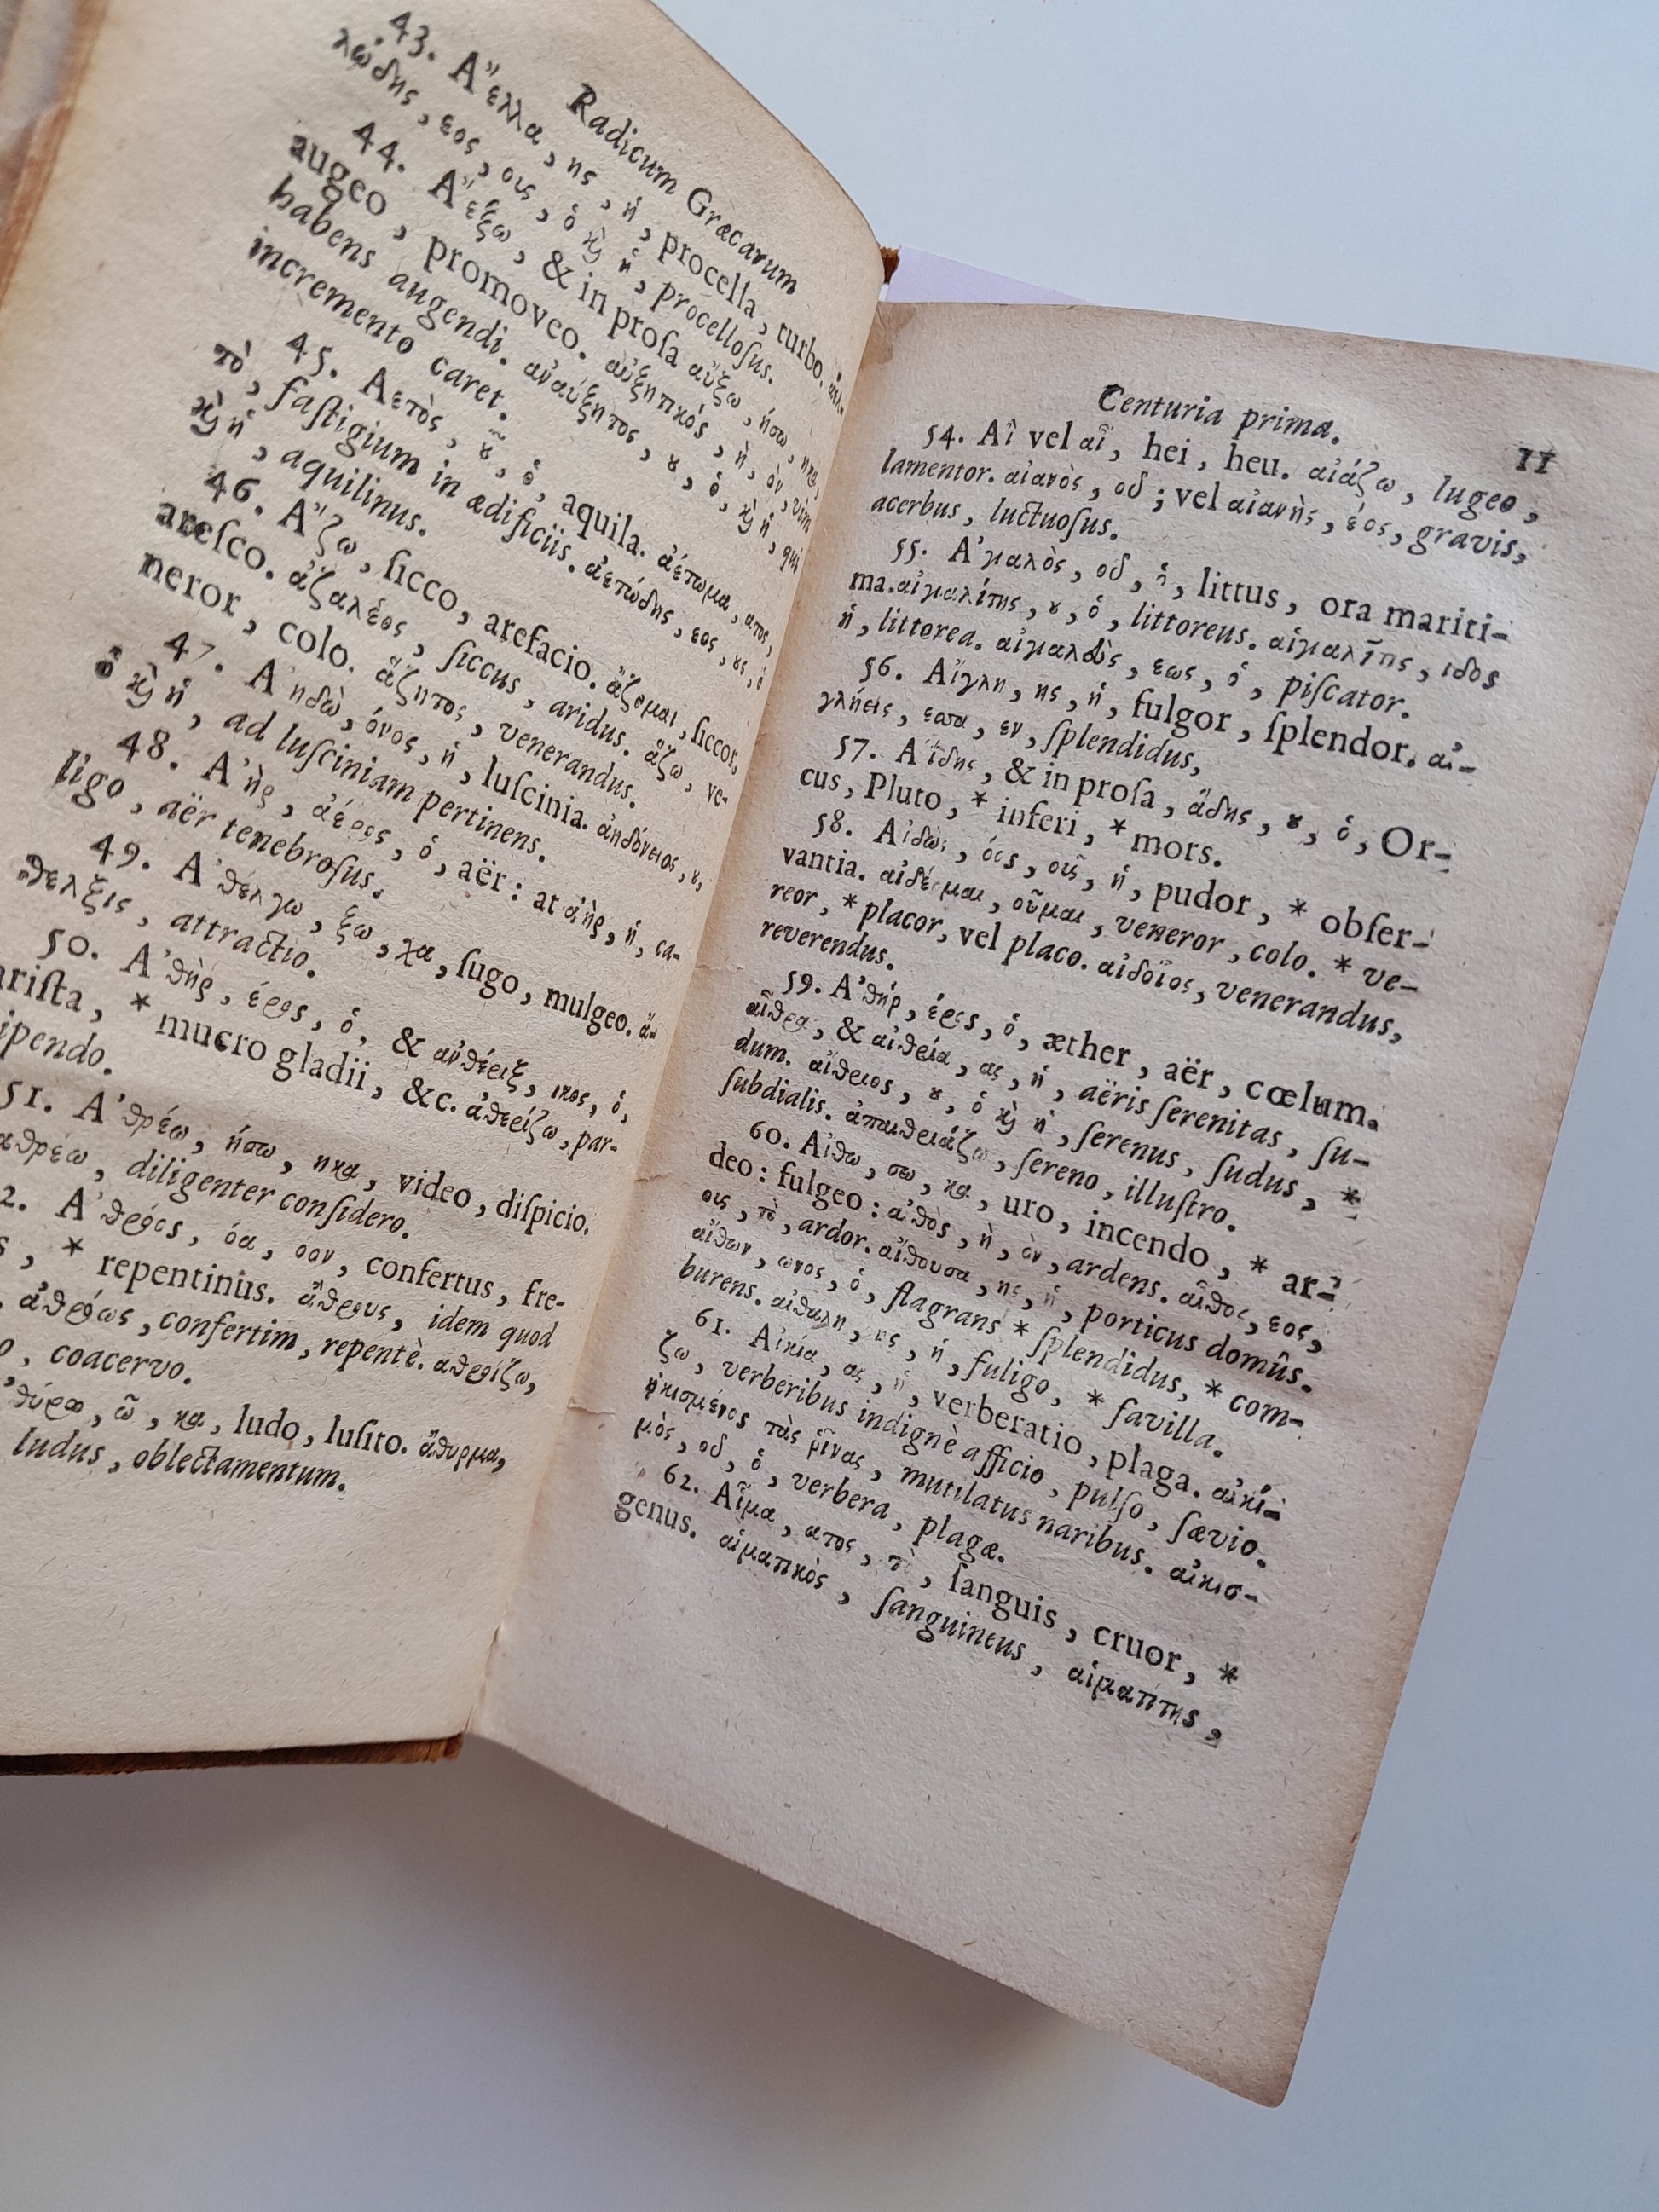 Radicum Græcarum
43. Α῎ελλα, ης, ἡ, procella, turbo. ἀελ-
λώδης, εος, ους, ὁ ϗ̀ ἡ, procelloſus.
44. Α῎εξω, & in proſa αὔξω, ήσω, ηκα,
augeo, promoveo. αὐξητικός, ἡ, ὸν, vim
habens augendi. ἀναύξητος, ȣ, ὁ, ϗ̀ ἡ, qui
incremento caret.
45. Αετὸς, ȣ͂, ὁ, aquila. ἀέτωμα, ατος,
τὸ, faſtigium in ædificiis. ἀετώδης, εος, ȣς, ὁ
ϗ̀ ἡ, aquilinus.
46. Α῎ζω, ſicco, arefacio. ἄζομαι, ſiccor,
areſco. ἀζαλέος, ſiccus, aridus. ἄζω, ve-
neror, colo. ἄζητος, venerandus.
47. Α᾿ηδὼ, όνος, ἡ, luſcinia. ἀηδόνειος, ȣ,
ὁ ϗ̀ ἡ, ad luſciniam pertinens.
48. Α᾿ὴρ, ἀέρος, ὁ, aër: at ἀὴρ, ἡ, ca-
ligo, aër tenebroſus.
49. Α᾿θέλγω, ξω, χα, ſugo, mulgeo. ἄ-
θελξις, attractio.
50. Α᾿θὴρ, έρος, ὁ, & ἀνθέριξ, ικος, ὁ,
ariſta, * mucro gladii, &c. ἀθερίζω, par-
ipendo.
51. Α᾿θρέω, ήσω, ηκα, video, diſpicio.
αθρέω, diligenter conſidero.
2. Α᾿θρόος, όα, όον, confertus, fre-
s, * repentinus. ἄθρους, idem quod
ἀθρόως, confertim, repentè. ἀθροίζω,
o, coacervo.
᾿θύρω, ῶ, κα, ludo, luſito. ἄθυρμα,
ludus, oblectamentum.
Centuria prima. 11
54. Αἲ vel αἶ, hei, heu. αἰάζω, lugeo,
lamentor. αἰανὸς, οῦ; vel αἰανὴς, έος, gravis,
acerbus, luctuoſus.
55. Α᾿ιγιαλὸς, οῦ, ὁ, littus, ora mariti-
ma. αἰγιαλίτης, ȣ, ὁ, littoreus. αἰγιαλῖτις, ιδος
ἡ, littorea. αἰγιαλεὺς, εως, ὁ, piſcator.
56. Αἴγλη, ης, ἡ, fulgor, ſplendor. αἰ-
γλήεις, εσσα, εν, ſplendidus,
57. Α᾿ίδης, & in proſa, ᾅδης, ȣ, ὁ, Or-
cus, Pluto, * inferi, * mors.
58. Αἰδὼς, όος, οῦς, ἡ, pudor, * obſer-
vantia. αἰδέομαι, οῦμαι, veneror, colo. * ve-
reor, * placor, vel placo. αἰδοῖος, venerandus,
reverendus.
59. Α᾿ιθήρ, έρος, ὁ, æther, aër, cœlum.
αἴθρα, & αἰθρία, ας, ἡ, aëris ſerenitas, ſu-
dum. αἴθριος, ȣ, ὁ ϗ̀ ἡ, ſerenus, ſudus, *
ſubdialis. ἀπαιθριάζω, ſereno, illuſtro.
60. Αἴθω, σω, κα, uro, incendo, * ar-
deo: fulgeo: αἰθὸς, ὴ, ὸν, ardens. αἶθος, εος,
ους, τὸ, ardor. αἴθουσα, ης, ἡ, porticus domûs.
αἴθων, ωνος, ὁ, flagrans * ſplendidus, * com-
burens. αἰθάλη, ης, ἡ, fuligo, * favilla.
61. Αἰκία, ας, ἡ, verberatio, plaga. αἰκί-
ζω, verberibus indignè afficio, pulſo, ſævio.
ἠκισμένος τὰς ῥῖνας, mutilatus naribus. αἰκισ-
μὸς, οῦ, ὁ, verbera, plagæ.
62. Αἷμα, ατος, τὸ, ſanguis, cruor, *
genus. αἱματικὸς, ſanguineus, αἱματίτης,